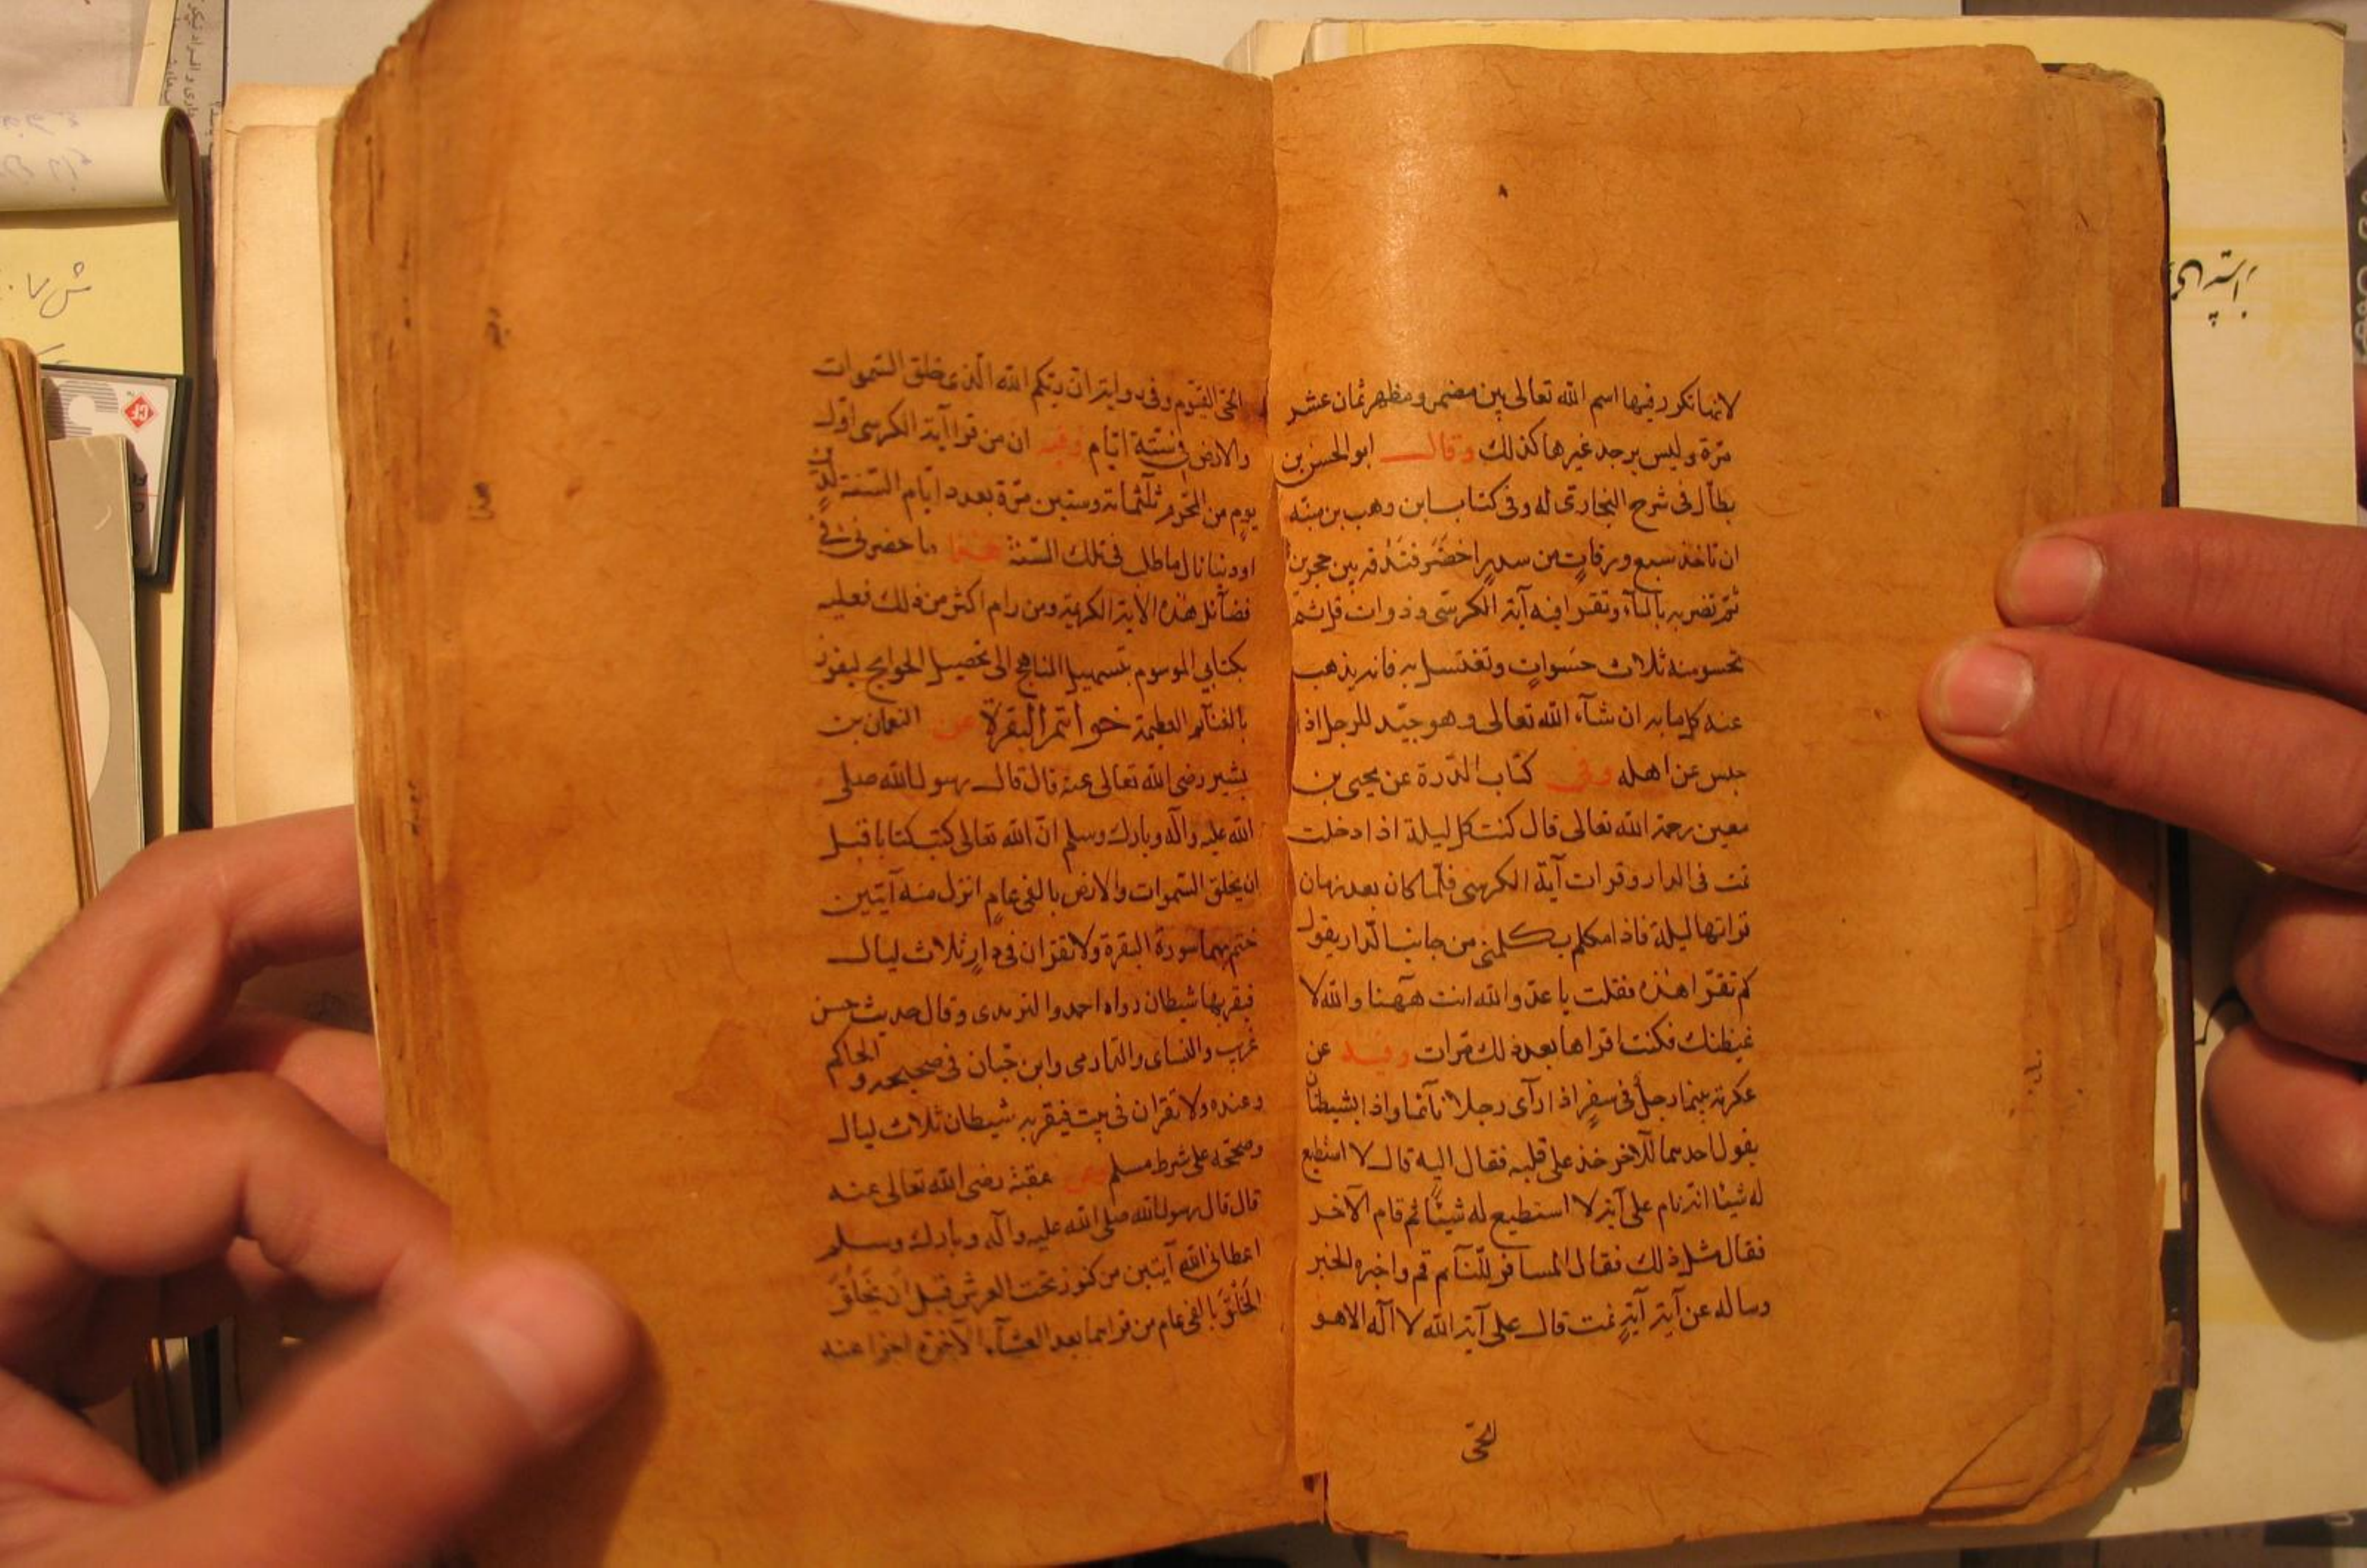 ٨
لانها تكرر فيها اسم الله تعالى بين مضمر ومظهر ثمان عشر
مرّة وليس يوجد غيرها كذلك وقال ابو الحسن بن
بطّال فى شرح البخارى له وفى كتاب ابن وهب بن منبّه
ان تاخذ سبع ورقاتٍ من سدرٍ اخضر فتدقه بين حجرين
ثمّ تضربه بالمآء وتقرا فيه آية الكرسى وذوات قل ثم
تحسو منه ثلاث حسواتٍ وتغتسل به فانه يذهب
عنه كل ما به ان شآء الله تعالى وهو جيّد للرجل اذا
حبس عن اهله وفى كتاب الدّرة عن يحيى بن
معين رحمة الله تعالى قال كنت كل ليلة اذا دخلت
نمت فى الدار وقرات آية الكرسى فلمّا كان بعد زمان
قراتها ليلة فاذا مكلم يكلمنى من جانب الدّار يقول
كم تقرا هذه فقلت يا عدوّ الله انت ههنا والله لا
غيظنك فكنت اقراها بعد ذلك مرّات وفيه عن
عكرمة بينما رجلٌ فى سفرٍ اذا رآى رجلا نآئما واذا بشيطان
يقول احدهما للآخر خذ على قلبه فقال اليه قال لا استطيع
له شيئا انه نام على آية لا استطيع له شيئًا ثم قام الآخر
فقال مثل ذلك فقال المسافر للنّآئم قم واخبره الخبر
وساله عن آية آيةٍ نمت قال على آية الله لا اله الا هو
الحىّ
الحىّ القيّوم وفى رواية ان ربكم الله الّذى خلق السّموات
والارض فى ستّة ايّام وفيه ان من قرا آية الكرسى اوّل
يوم من المحرّم ثلثمائة وستين مرّة بعدد ايّام السّنة لدين
او دنيا نال ما طلب فى تلك السّنة هذا ما حضرنى فى
فضآئل هذه الآية الكريمة ومن رام اكثر من ذلك فعليه
بكتابي الموسوم بتسهيل المناهج الى تحصيل الحوايج ليفوز
بالغنآئم العظيمة خواتم البقرة عن النعمان بن
بشير رضى الله تعالى عنه قال قال رسول الله صلى
الله عليه وآله وبارك وسلم انّ الله تعالى كتب كتابا قبل
ان يخلق السّموات والارض بالفى عامٍ انزل منه آيتين
ختم بهما سورة البقرة ولا تقران فى دارٍ ثلاث ليال
فيقربها شيطان رواه احمد والترمذى وقال حديث حسن
غريب والنساى والدارمى وابن حبّان فى صحيحه والحاكم
وعنده ولا تقران فى بيت فيقربه شيطان ثلاث ليال
وصححه على شرط مسلم وعن عقبة رضى الله تعالى عنه
قال قال رسول الله صلى الله عليه وآله وبارك وسلم
اعطانى الله آيتين من كنوز تحت العرش قبل ان يخلق
الخلق بالفى عام من قراهما بعد العشآء الآخرة اجزا عنه